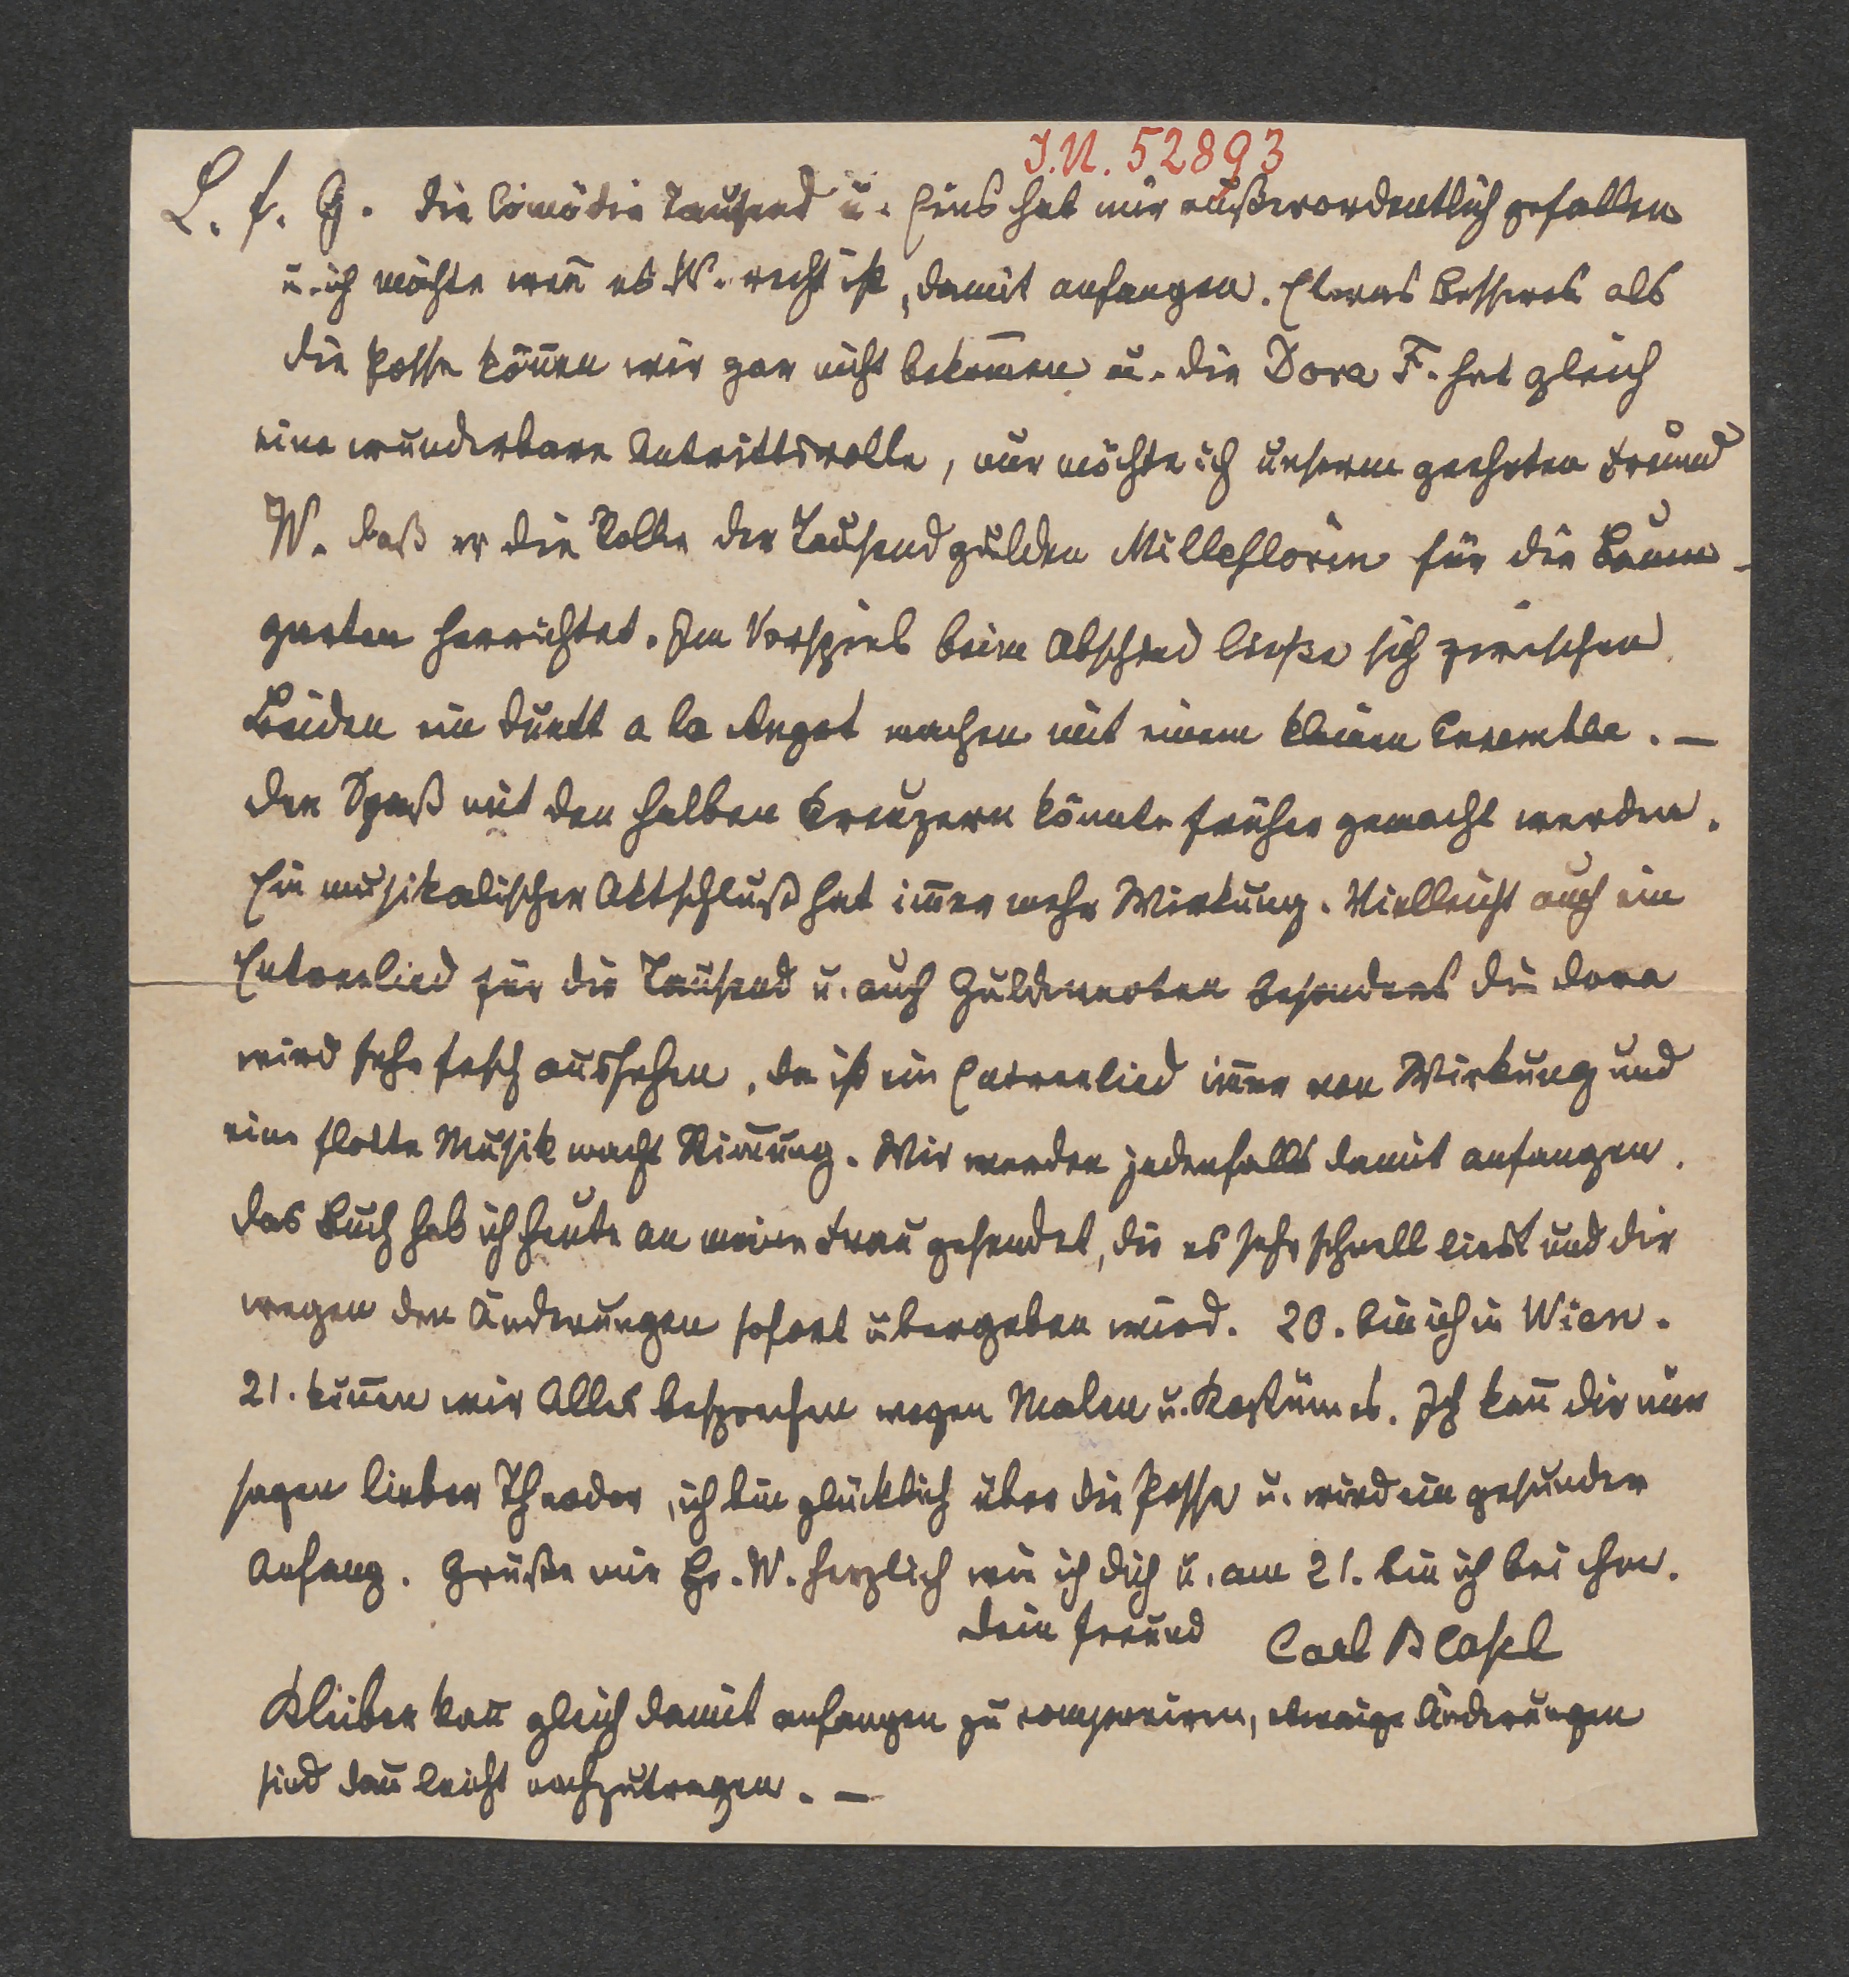 I.N. 52893
L. f. G. Die Comödie Tausend u. Eins hat mir außerordentlich gefallen
u. ich möchte weñ es W. recht ist, damit anfangen. Etwas Besseres als
die Posse köñen wir gar nicht bekom̄en u. die Dora F. hat gleich
eine wunderbare Antrittsrolle, nur möchte ich unserm geehrten Freund
W. daß er die Rolle der Tausendgulden Milleflorin für die Baum-
garten herrichtet. Im Vorspiel beim Abschied ließe sich zwischen
Beiden ein Duett a la Angot machen mit einem kleinen Ensemble. —
Der Spaß mit den halben Kreuzern könnte früher gemacht werden.
Ein musikalischer Aktschluß hat im̄er mehr Wirkung. Vielleicht auch ein
Entreelied für die Tausend u. auch Guldennoten besonders die Dora
wird sehr fesch aussehen, da ist ein Entreelied im̄er von Wirkung und
eine flotte Musik macht Stim̄ung. Wir werden jedenfalls damit anfangen.
Das Buch hab ich heute an meine Frau gesendet, die es sehr schnell liest und dir
wegen den Änderungen sofort übergeben wird. 20. bin ich in Wien.
21. köñen wir Alles besprechen wegen Malen u. Kostümes. Ich kañ dir nur
sagen lieber Theodor, ich bin glücklich über die Posse u. wird ein gesunder
Anfang. Grüße mir Hr. W. herzlich wie ich dich u. am 21. bin ich bei ihm.
Dein Freund Carl Blasel
Kleiber kañ gleich damit anfangen zu componiren, etwaige Änderungen
sind dañ leicht nachzutragen. —